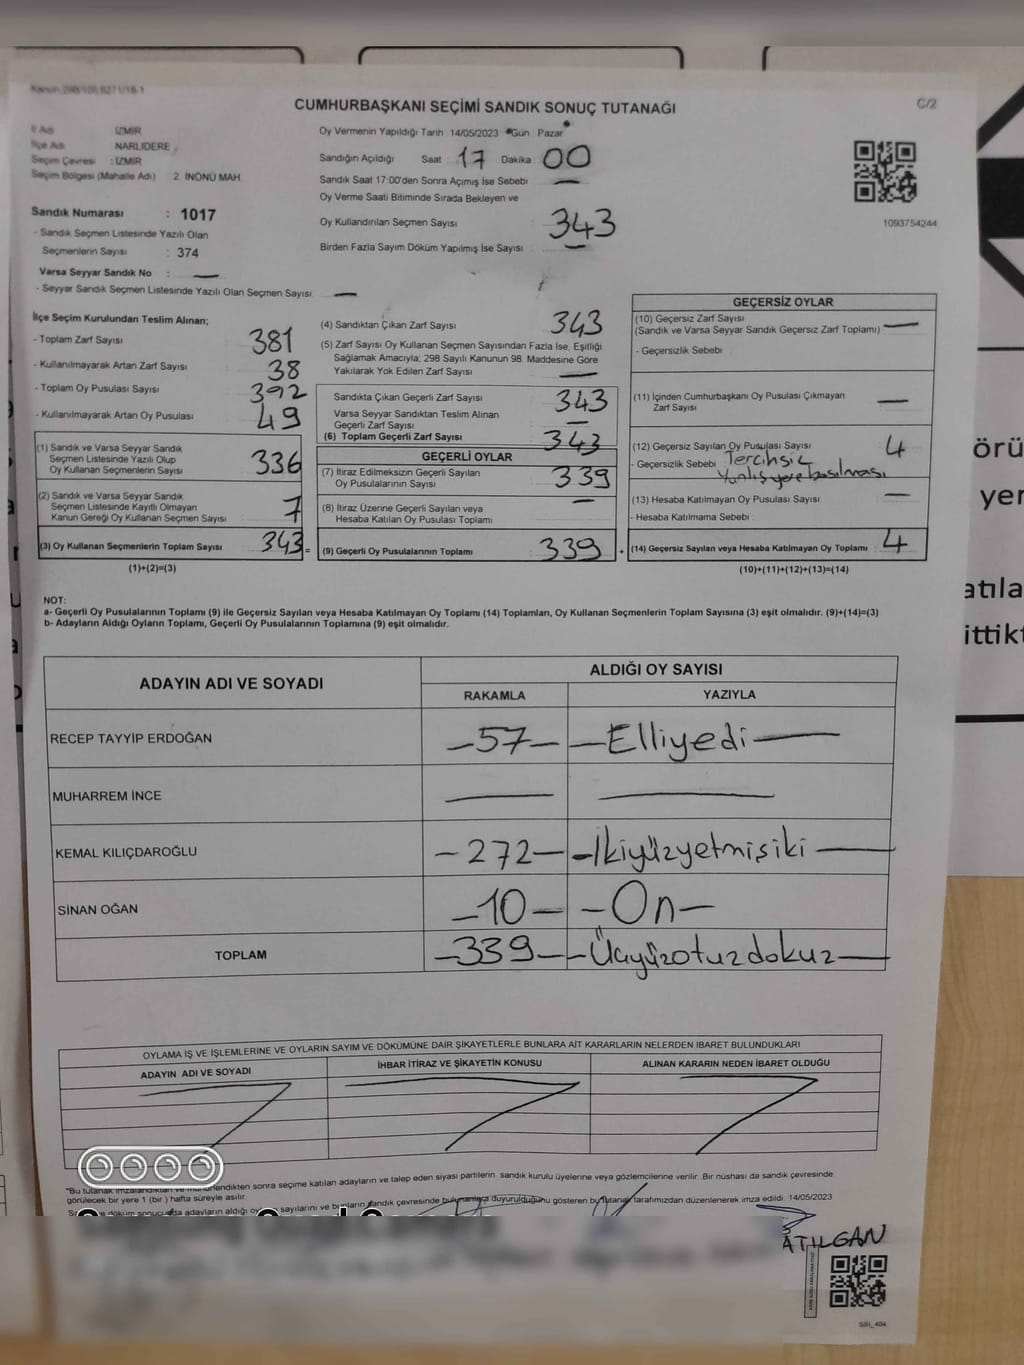 Kanun 298/105,6271/16-1
C/2
CUMHURBAŞKANI SEÇİMİ SANDIK SONUÇ TUTANAĞI
İl Adı İZMİR
İlçe Adı NARLIDERE
Seçim Çevresi : İZMİR
Seçim Bölgesi (Mahalle Adı) 2. İNÖNÜ MAH.
Sandık Numarası : 1017
- Sandık Seçmen Listesinde Yazılı Olan
Seçmenlerin Sayısı : 374
Varsa Seyyar Sandık No : —
- Seyyar Sandık Seçmen Listesinde Yazılı Olan Seçmen Sayısı —
Oy Vermenin Yapıldığı Tarih 14/05/2023 Gün Pazar
Sandığın Açıldığı Saat 17 Dakika 00
Sandık Saat 17:00'den Sonra Açımış İse Sebebi —
Oy Verme Saati Bitiminde Sırada Bekleyen ve
Oy Kullandırılan Seçmen Sayısı 343
Birden Fazla Sayım Döküm Yapılmış İse Sayısı —
1093754244
İlçe Seçim Kurulundan Teslim Alınan;
- Toplam Zarf Sayısı 381
- Kullanılmayarak Artan Zarf Sayısı 38
- Toplam Oy Pusulası Sayısı 392
- Kullanılmayarak Artan Oy Pusulası 49
(1) Sandık ve Varsa Seyyar Sandık
Seçmen Listesinde Yazılı Olup
Oy Kullanan Seçmenlerin Sayısı 336
(2) Sandık ve Varsa Seyyar Sandık
Seçmen Listesinde Kayıtlı Olmayan
Kanun Gereği Oy Kullanan Seçmen Sayısı 7
(3) Oy Kullanan Seçmenlerin Toplam Sayısı 343 =
(1)+(2)=(3)
(4) Sandıktan Çıkan Zarf Sayısı 343
(5) Zarf Sayısı Oy Kullanan Seçmen Sayısından Fazla İse, Eşitliği
Sağlamak Amacıyla; 298 Sayılı Kanunun 98. Maddesine Göre
Yakılarak Yok Edilen Zarf Sayısı —
Sandıkta Çıkan Geçerli Zarf Sayısı 343
Varsa Seyyar Sandıktan Teslim Alınan
Geçerli Zarf Sayısı —
(6) Toplam Geçerli Zarf Sayısı 343
GEÇERLİ OYLAR
(7) İtiraz Edilmeksizin Geçerli Sayılan
Oy Pusulalarının Sayısı 339
(8) İtiraz Üzerine Geçerli Sayılan veya
Hesaba Katılan Oy Pusulası Toplamı —
(9) Geçerli Oy Pusulalarının Toplamı 339 +
GEÇERSİZ OYLAR
(10) Geçersiz Zarf Sayısı
(Sandık ve Varsa Seyyar Sandık Geçersiz Zarf Toplamı) —
- Geçersizlik Sebebi
(11) İçinden Cumhurbaşkanı Oy Pusulası Çıkmayan
Zarf Sayısı —
(12) Geçersiz Sayılan Oy Pusulası Sayısı 4
- Geçersizlik Sebebi Tercihsiz
Yanlış yere basılması
(13) Hesaba Katılmayan Oy Pusulası Sayısı —
- Hesaba Katılmama Sebebi
(14) Geçersiz Sayılan veya Hesaba Katılmayan Oy Toplamı 4
(10)+(11)+(12)+(13)=(14)
NOT:
a- Geçerli Oy Pusulalarının Toplamı (9) ile Geçersiz Sayılan veya Hesaba Katılmayan Oy Toplamı (14) Toplamları, Oy Kullanan Seçmenlerin Toplam Sayısına (3) eşit olmalıdır. (9)+(14)=(3)
b- Adayların Aldığı Oyların Toplamı, Geçerli Oy Pusulalarının Toplamına (9) eşit olmalıdır.
ADAYIN ADI VE SOYADI ALDIĞI OY SAYISI
RAKAMLA YAZIYLA
RECEP TAYYİP ERDOĞAN —57— —Elliyedi—
MUHARREM İNCE — —
KEMAL KILIÇDAROĞLU —272— —İkiyüzyetmişiki—
SİNAN OĞAN —10— —On—
TOPLAM —339— —Üçyüzotuzdokuz—
OYLAMA İŞ VE İŞLEMLERİNE VE OYLARIN SAYIM VE DÖKÜMÜNE DAİR ŞİKAYETLERLE BUNLARA AİT KARARLARIN NELERDEN İBARET BULUNDUKLARI
ADAYIN ADI VE SOYADI İHBAR İTİRAZ VE ŞİKAYETİN KONUSU ALINAN KARARIN NEDEN İBARET OLDUĞU
"Bu tutanak imzalandıktan ve mühürlendikten sonra seçime katılan adayların ve talep eden siyasi partilerin sandık kurulu üyelerine veya gözlemcilerine verilir. Bir nüshası da sandık çevresinde
görülecek bir yere 1 (bir) hafta süreyle asılır.
döküm sonucunda adayların aldığı oy sayılarını ve bunların sandık çevresinde bulunanlara duyurulduğunu gösteren bu tutanak tarafımızdan düzenlenerek imza edildi. 14/05/2023
ATILGAN
SSI_404
örü
yer
atıla
ittikt